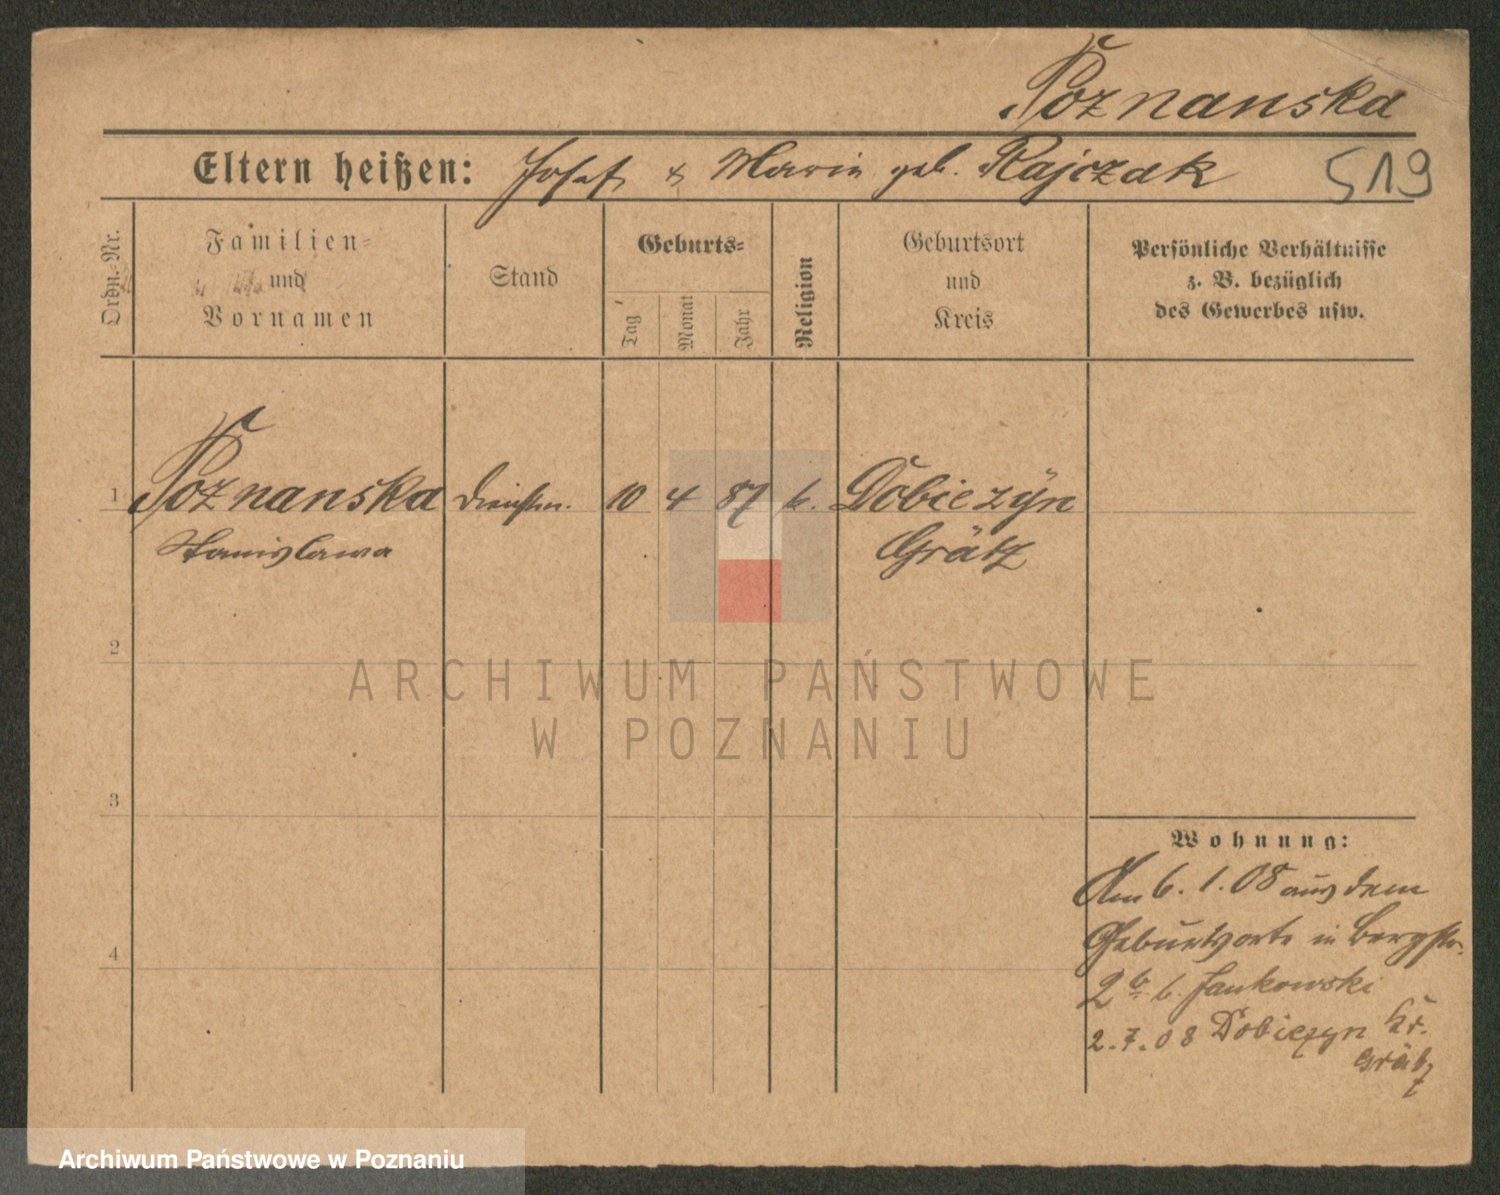 Poznanska
Eltern heißen: Josef & Maria geb. Rajczak 519
Ordn.-Nr.
Familien-
und
Vornamen
Stand
Geburts-
Tag
Monat
Jahr
Religion
Geburtsort
und
Kreis
Persönliche Verhältnisse
z. B. bezüglich
des Gewerbes usw.
1 Poznanska Dienstm. 10 4 87 k. Dobiezyn
Stanislawa Grätz
2
3
4
Wohnung:
Am 6. 1. 08 aus dem
Geburtsorte in Bergstr.
2b b. Jankowski
2. 7. 08 Dobiezyn Kr.
Grätz
ARCHIWUM PAŃSTWOWE
W POZNANIU
Archiwum Państwowe w Poznaniu